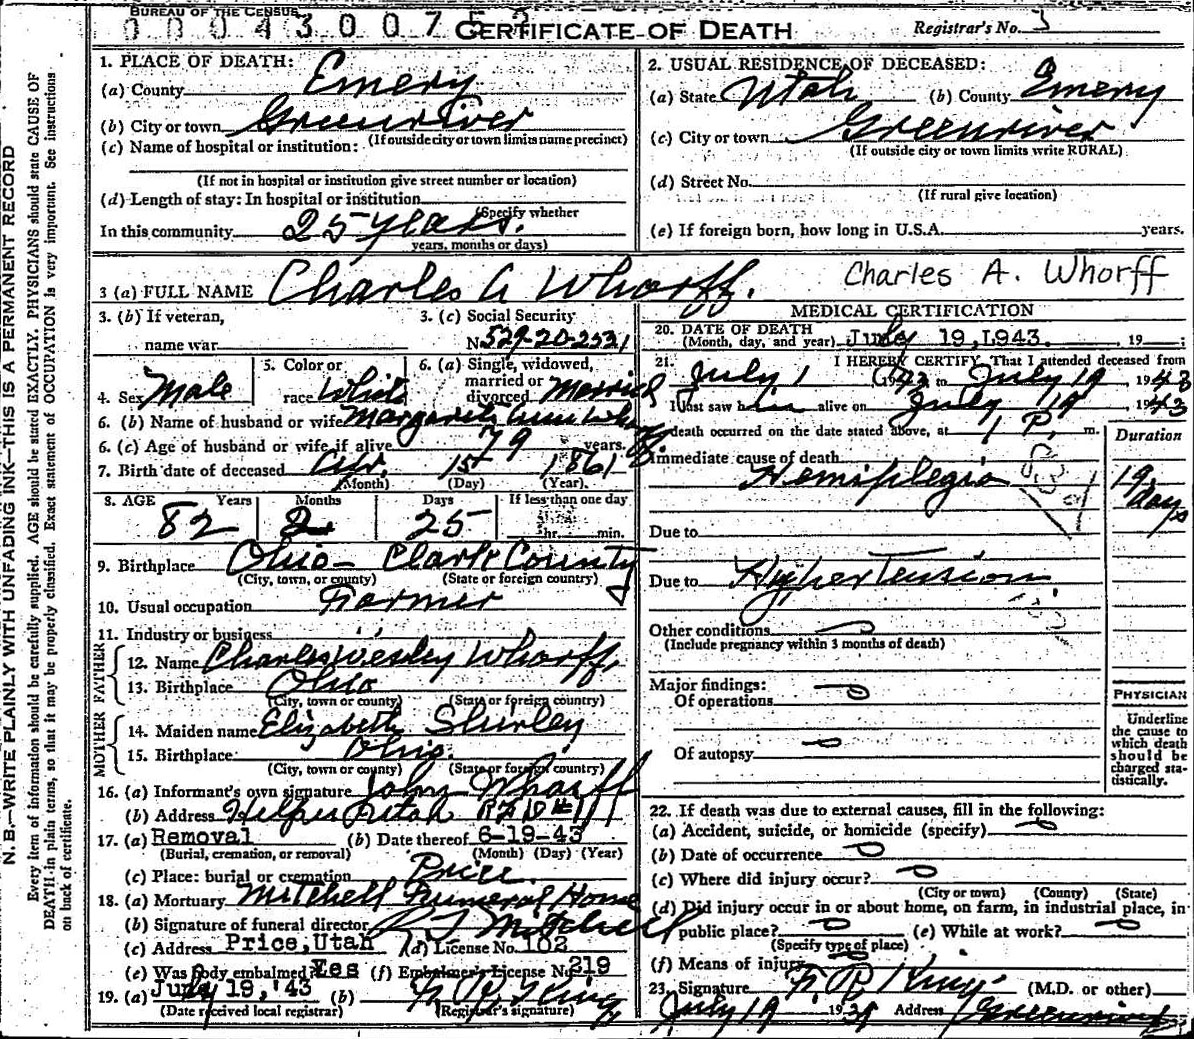 BUREAU OF THE CENSUS
CERTIFICATE OF DEATH
Registrar's No. 3
N. B.—WRITE PLAINLY WITH UNFADING INK—THIS IS A PERMANENT RECORD
Every item of information should be carefully supplied. AGE should be stated EXACTLY. PHYSICIANS should state CAUSE OF
DEATH in plain terms, so that it may be properly classified. Exact statement of OCCUPATION is very important. See instructions
on back of certificate.
1. PLACE OF DEATH:
(a) County Emery
(b) City or town Greenriver
(If outside city or town limits name precinct)
(c) Name of hospital or institution:
(If not in hospital or institution give street number or location)
(d) Length of stay: In hospital or institution
(Specify whether
In this community 25 years.
years, months or days)
2. USUAL RESIDENCE OF DECEASED:
(a) State Utah (b) County Emery
(c) City or town Greenriver
(If outside city or town limits write RURAL)
(d) Street No.
(If rural give location)
(e) If foreign born, how long in U.S.A. years.
3 (a) FULL NAME Charles A Whorff. Charles A. Whorff
3. (b) If veteran,
name war
3. (c) Social Security
No. 529-20-2531
4. Sex Male
5. Color or
race White
6. (a) Single, widowed,
married or
divorced Married
6. (b) Name of husband or wife Margaret Ann Whorff
6. (c) Age of husband or wife if alive 79 years.
7. Birth date of deceased Apr. 15 1861
(Month) (Day) (Year)
8. AGE Years Months Days If less than one day
82 2 25 hr. min.
9. Birthplace Ohio - Clark County
(City, town, or county) (State or foreign country)
10. Usual occupation Farmer
11. Industry or business
FATHER
12. Name Charles Wesley Whorff,
13. Birthplace Ohio
(City, town or county) (State or foreign country)
MOTHER
14. Maiden name Elizabeth Shirley
15. Birthplace Ohio.
(City, town or county) (State or foreign country)
16. (a) Informant's own signature John Whorff
(b) Address Helper Utah RFD #1
17. (a) Removal (b) Date thereof 6-19-43
(Burial, cremation, or removal) (Month) (Day) (Year)
(c) Place: burial or cremation Price.
18. (a) Mortuary Mitchell Funeral Home
(b) Signature of funeral director R J Mitchell
(c) Address Price, Utah (d) License No. 102
(e) Was body embalmed? Yes (f) Embalmer's License No. 219
19. (a) July 19, '43 (b)
(Date received local registrar) (Registrar's signature)
MEDICAL CERTIFICATION
20. DATE OF DEATH
(Month, day, and year) July 19, 1943. 19
21. I HEREBY CERTIFY, That I attended deceased from
July 1 1943 to July 19 1943
I last saw him alive on July 19 1943
death occurred on the date stated above, at 1 P. m.
Duration
Immediate cause of death
Hemiplegia
19 days
Due to
Due to Hypertension
Other conditions
(Include pregnancy within 3 months of death)
Major findings:
Of operations
Of autopsy
PHYSICIAN
Underline
the cause to
which death
should be
charged sta-
tistically.
22. If death was due to external causes, fill in the following:
(a) Accident, suicide, or homicide (specify)
(b) Date of occurrence
(c) Where did injury occur?
(City or town) (County) (State)
(d) Did injury occur in or about home, on farm, in industrial place, in
public place? (e) While at work?
(Specify type of place)
(f) Means of injury
23. Signature (M.D. or other)
July 19 19 Address Greenriver